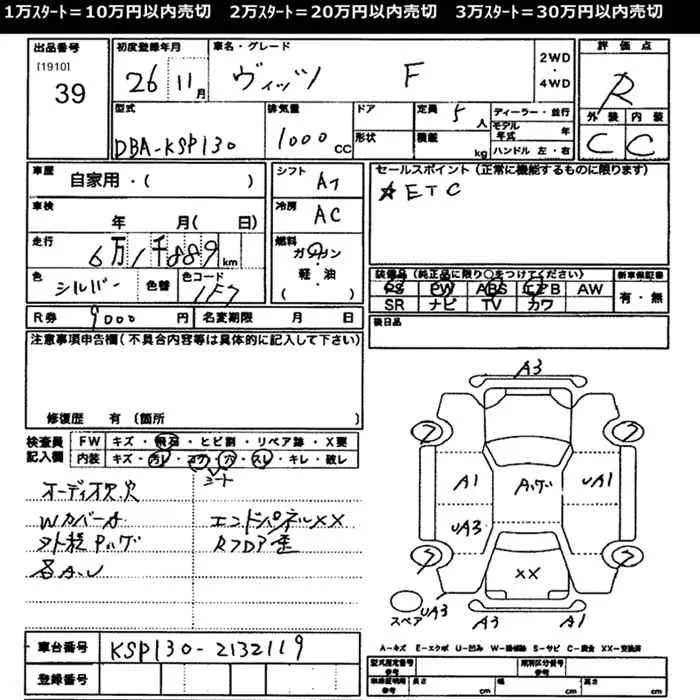 1万ｽﾀｰﾄ＝10万円以内売切　2万ｽﾀｰﾄ＝20万円以内売切　3万ｽﾀｰﾄ＝30万円以内売切
出品番号 初度登録年月 車名・グレード 2WD・4WD 評価点
[1910]
39 26 11月 ヴィッツ F R
型式 排気量 ドア 定員 5人 ディーラー・並行 外装 内装
DBA-KSP130 1000cc 形状 積載 kg モデル年式 年 ハンドル 左・右 C C
車歴 自家用・( ) シフト AT セールスポイント(正常に機能するものに限ります)
車検 年 月( 日) 冷房 AC ☆ETC
走行 6万1千889km 燃料 ガソリン・軽・油 ( )
色 シルバー 色替 色コード 1F7
装備品(純正品に限り○をつけてください) 新車保証書
PS PW ABS エアB AW 有・無
SR ナビ TV カワ
R券 9000円 名変期限 月 日 後日品
注意事項申告欄(不具合内容等は具体的に記入して下さい)
修復歴 有(箇所 )
検査員記入欄 FW キズ・飛石・ヒビ割・リペア跡・X要
内装 キズ・汚レ・コゲ・穴・スレ・キレ・破レ
シート
オーディオ欠.穴
Wカバー大 エンドパネルXX
外程Pハゲ Rフロア歪
各A.U
A3
7 7
A1 Aハゲ UA1
UA3
7 7
XX
スペア UA3 A3 A1
A-キズ E-エクボ U-凹み W-補修跡 S-サビ C-腐食 XX-交換済
車台番号 KSP130-2132119
登録番号
型式指定番号 参考 類別区分番号 参考
車検証明書 参考 長さ cm 幅 cm 高さ cm